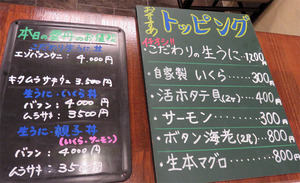 本日の
エゾバフンウニ
4,000円
キタムラサキウニ 3,500円
生うに・いくら丼
バフン 4,000円
ムラサキ 3,500円
生うに・親子丼
(いくら・サーモン)
バフン 4,000円
ムラサキ 3,500
おすすめ トッピング
こだわりの生うに・1,200円
・自家製 いくら 300円
・活ホタテ貝(2ヶ) 400円
・サーモン 300円
・ボタン海老(2尾) 800円
・生本マグロ 800円